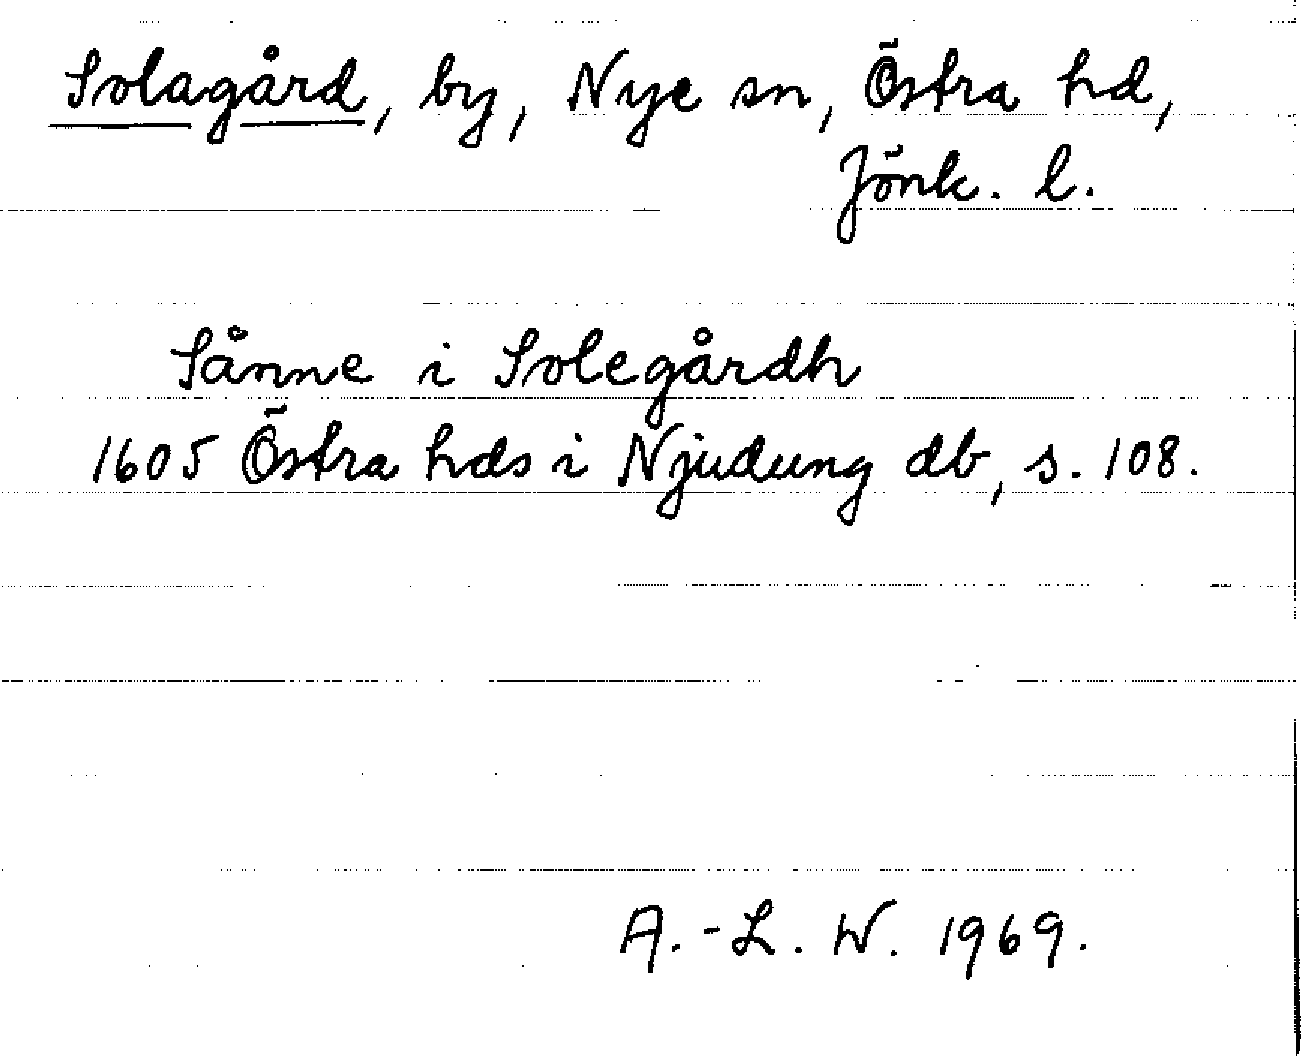 Solagård, by, Nye sn, Östra hd,
Jönk. l.
Sånne i Solegårdh
1605 Östra hds i Njudung db, s. 108.
A.-L. W. 1969.